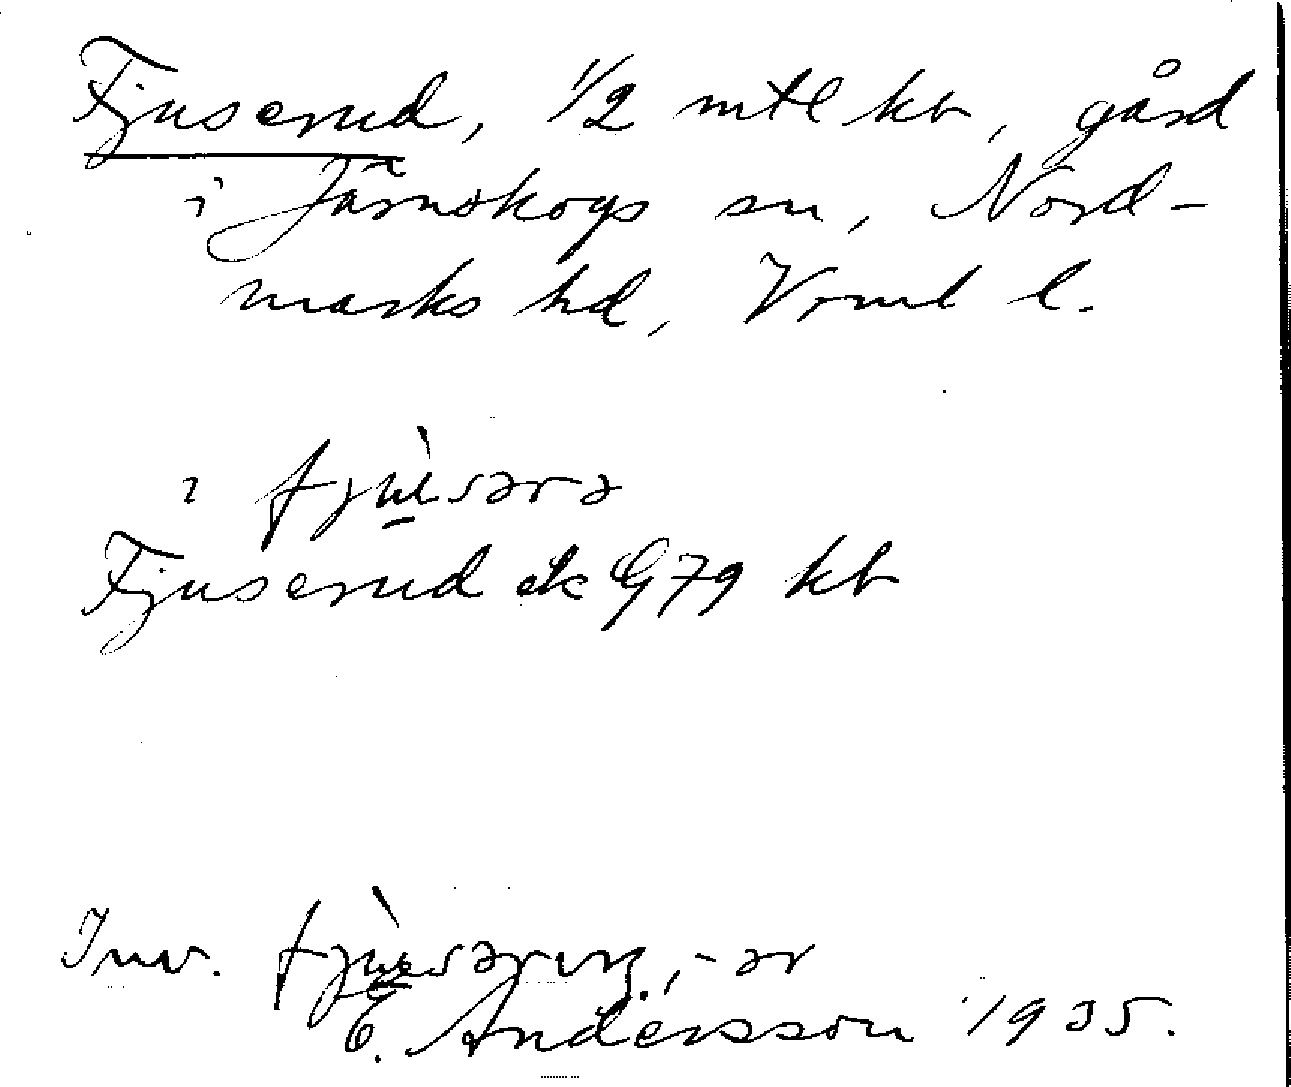 Fjuserud, 1/2 mtl kr, gård
i Järnskogs sn, Nord-
marks hd, Vrml l.
i fjùsərə
Fjuserud ek G79 kr
Inv. fjùsəriŋ, -ər
E. Andersson 1935.